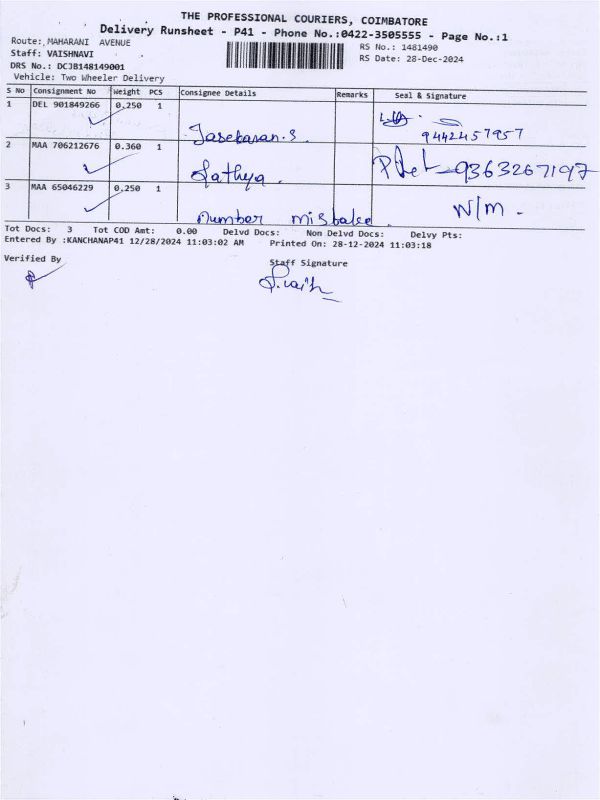 THE PROFESSIONAL COURIERS, COIMBATORE
Delivery Runsheet - P41 - Phone No.:0422-3505555 - Page No.:1
Route: MAHARANI AVENUE
Staff: VAISHNAVI
DRS No.: DCJB148149001
Vehicle: Two Wheeler Delivery
RS No.: 1481490
RS Date: 28-Dec-2024
S No Consignment No Weight PCS Consignee Details Remarks Seal & Signature
1 DEL 901849266 0.250 1
Jasekaran.S. 9442457957
2 MAA 706212676 0.360 1
Sathya. 9363267197
3 MAA 65046229 0.250 1
number mistake N/M.
Tot Docs: 3 Tot COD Amt: 0.00 Delvd Docs: Non Delvd Docs: Delvy Pts:
Entered By :KANCHANAP41 12/28/2024 11:03:02 AM Printed On: 28-12-2024 11:03:18
Verified By Staff Signature